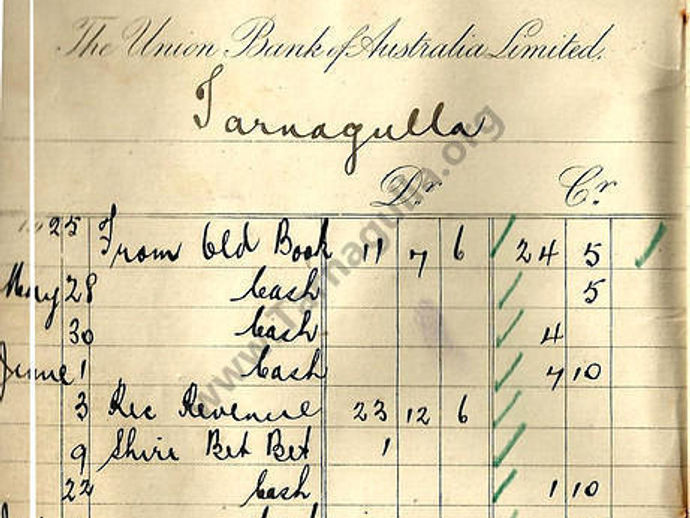 The Union Bank of Australia Limited.
Tarnagulla
Dr. Cr.
1925 From Old Book 11 7 6 24 5
May 28 Cash 5
30 Cash 4
June 1 Cash 7 10
3 Rec Revenue 23 12 6
9 Shire Bet Bet 1
22 Cash 1 10
www.Tarnagulla.org